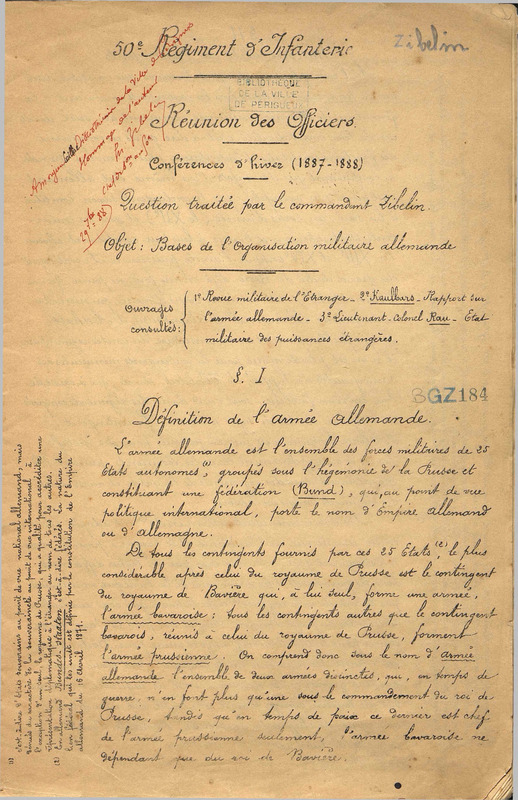 50e Régiment d'Infanterie
Zibelin
BIBLIOTHEQUE
DE LA VILLE
DE PERIGUEUX
Réunion des Officiers
Hommage de l'auteur
Zibelin
Conférences d'hiver (1887-1888)
Question traitée par le commandant Zibelin.
Objet : Bases de l'Organisation militaire allemande
Ouvrages
consultés:
1o Revue militaire de l'Etranger - 2o Kaulbars - Rapport sur
l'armée allemande - 3o Lieutenant-Colonel Rau - Etat
militaire des puissances étrangères.
§. I
BGZ184
Définition de l'armée allemande.
L'armée allemande est l'ensemble des forces militaires de 25
Etats autonomes(1), groupés sous l'hégémonie de la Prusse et
constituant une fédération (Bund), qui, au point de vue
politique international, porte le nom d'Empire Allemand
ou d'Allemagne.
De tous les contingents fournis par ces 25 Etats(2), le plus
considérable après celui du royaume de Prusse est le contingent
du royaume de Bavière qui, à lui seul, forme une armée,
l'armée bavaroise : tous les contingents autres que le contingent
bavarois, réunis à celui du royaume de Prusse, forment
l'armée prussienne. On comprend donc sous le nom d'armée
allemande l'ensemble de deux armées distinctes, qui, en temps de
guerre, n'en font plus qu'une sous le commandement du roi de
Prusse, tandis qu'en temps de paix ce dernier est chef
de l'armée prussienne seulement, l'armée bavaroise ne
dépendant que du roi de Bavière.
(1) c'est-à-dire d'états souverains au point de vue national allemand, mais
dénués du caractère de la souveraineté au point de vue international à
l'exception d'un seul, le royaume de Prusse, qui a qualité pour accréditer une
représentation diplomatique à l'étranger au nom de tous les autres.
(2) En allemand Bundes-staaten c'est-à-dire états fédérés. La nature du
lien fédéral qui les unit est définie par la constitution de l'Empire
allemand du 16 avril 1871.